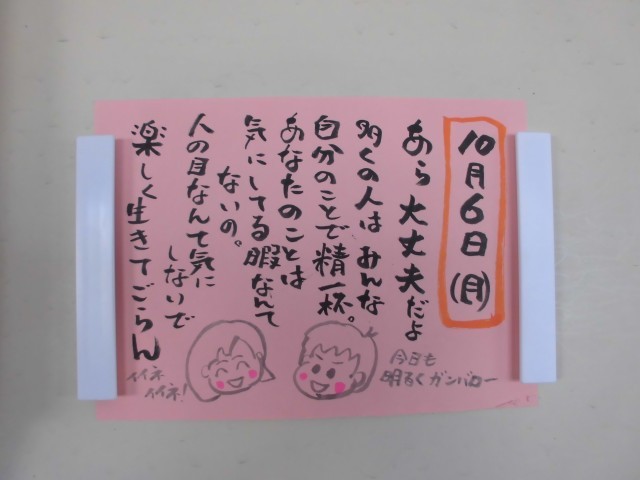 10月6日(月)
あら大丈夫だよ
多くの人はみんな
自分のことで精一杯。
あなたのことは
気にしてる暇なんて
ないの。
人の目なんて気に
しないで
楽しく生きてごらん
今日も
明るくガンバロー
イイネ
イイネ!